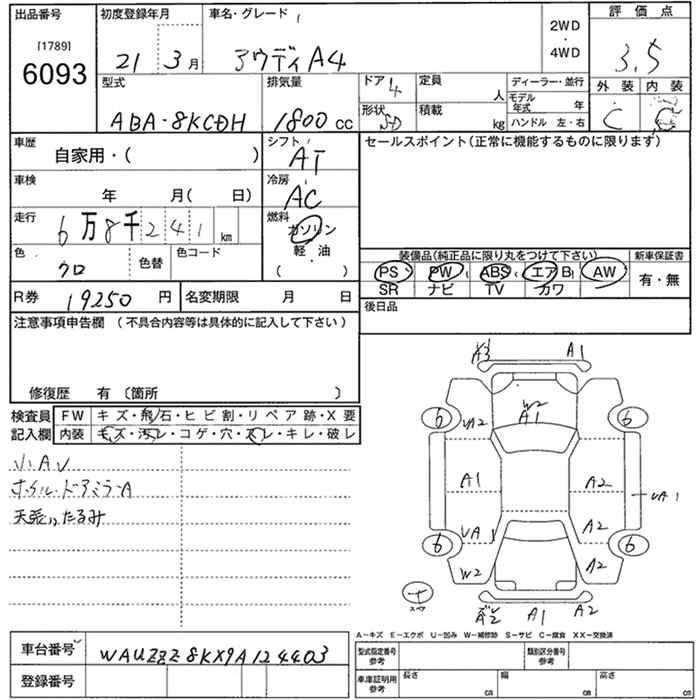 出品番号
[1789]
6093
初度登録年月
21 3月
車名・グレード
アウディA4
2WD
・
4WD
評価点
3.5
外装 内装
C C
型式
ABA-8KCDH
排気量
1800 cc
ドア 4
形状 SD
定員 人
積載 kg
ディーラー・並行
モデル年式 年
ハンドル 左・右
車歴
自家用・( )
シフト
AT
セールスポイント(正常に機能するものに限ります)
車検
年 月( 日)
冷房
AC
走行
6万8千241km
燃料
ガソリン
軽・油
( )
色
クロ
色替
色コード
装備品(純正品に限り丸をつけて下さい)
PS PW ABS エアB AW
SR ナビ TV カワ
新車保証書
有・無
R券 19250円
名変期限 月 日
後日品
注意事項申告欄 (不具合内容等は具体的に記入して下さい)
修復歴 有〔箇所 〕
検査員記入欄
FW キズ・飛石・ヒビ割・リペア跡・X要
内装 キズ・汚レ・コゲ・穴・スレ・キレ・破レ
小AU
ホイル・ドアミラーA
天張りたるみ
A3 A1
W2
A1
6 UA2 6
A1 A2
UA1
UA1 A2
6 6
W2 A2
スペア
A1 A2
A-キズ E-エクボ U-凹み W-補修跡 S-サビ C-腐食 XX-交換済
車台番号
WAUZZZ8KX9A124403
登録番号
型式指定番号
参考
類別区分番号
参考
車庫証明用
参考
長さ cm
幅 cm
高さ cm